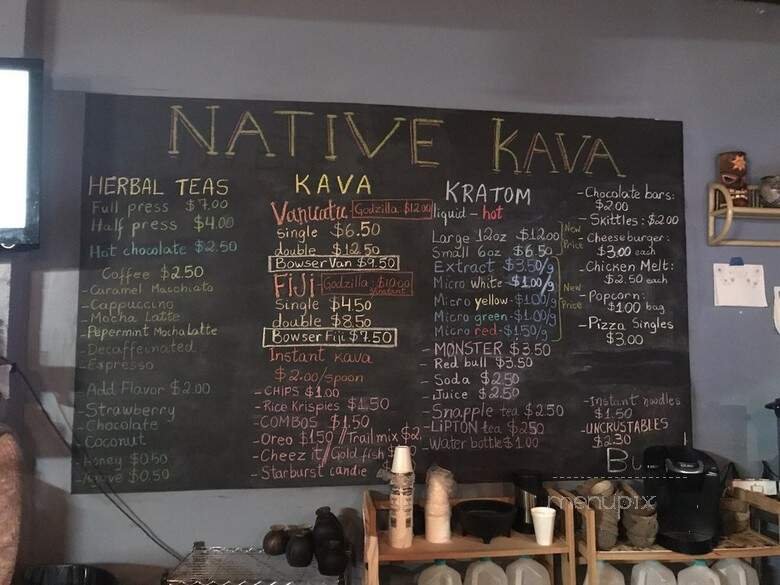 NATIVE KAVA
HERBAL TEAS
Full press $7.00
Half press $4.00
Hot chocolate $2.50
Coffee $2.50
-Caramel Macchiato
-Cappuccino
-Mocha Latte
-Pepermint Mocha Latte
-Decaffeinated
-Espresso
-Add Flavor $2.00
-Strawberry
-Chocolate
-Coconut
-honey $0.50
$0.50
KAVA
Vanuatu Godzilla: $12.00
single $6.50
double $12.50
Bowser Van $9.50
FIJI Godzilla: $10.00
instant
Single $4.50
double $8.50
Bowser Fiji $7.50
Instant kava
$2.00/spoon
-CHIPS $1.00
-Rice Krispies $1.50
-COMBOS $1.50
-Oreo $1.50 // Trail mix $2,
-Cheez it / Gold fish
-Starburst candie
KRATOM
liquid - hot
Large 12oz $12.00
Small 6oz $6.50
New Price
Extract $3.50/g
Micro white - $1.00/g
Micro yellow - $1.00/g
Micro green - $1.00/g
Micro red - $1.50/g
New Price
-MONSTER $3.50
-Red bull $3.50
-Soda $2.50
-Juice $2.50
-Snapple tea $2.50
-LiPTON tea $2.50
-Water bottle $1.00
-Chocolate bars:
$2.00
-Skittles: $2.00
-Cheeseburger:
$3.00 each
-Chicken Melt:
$2.50 each
-Popcorn:
$1.00 bag
-Pizza Singles
$3.00
-Instant noodles
$1.50
-UNCRUSTABLES
$2.30
menupix